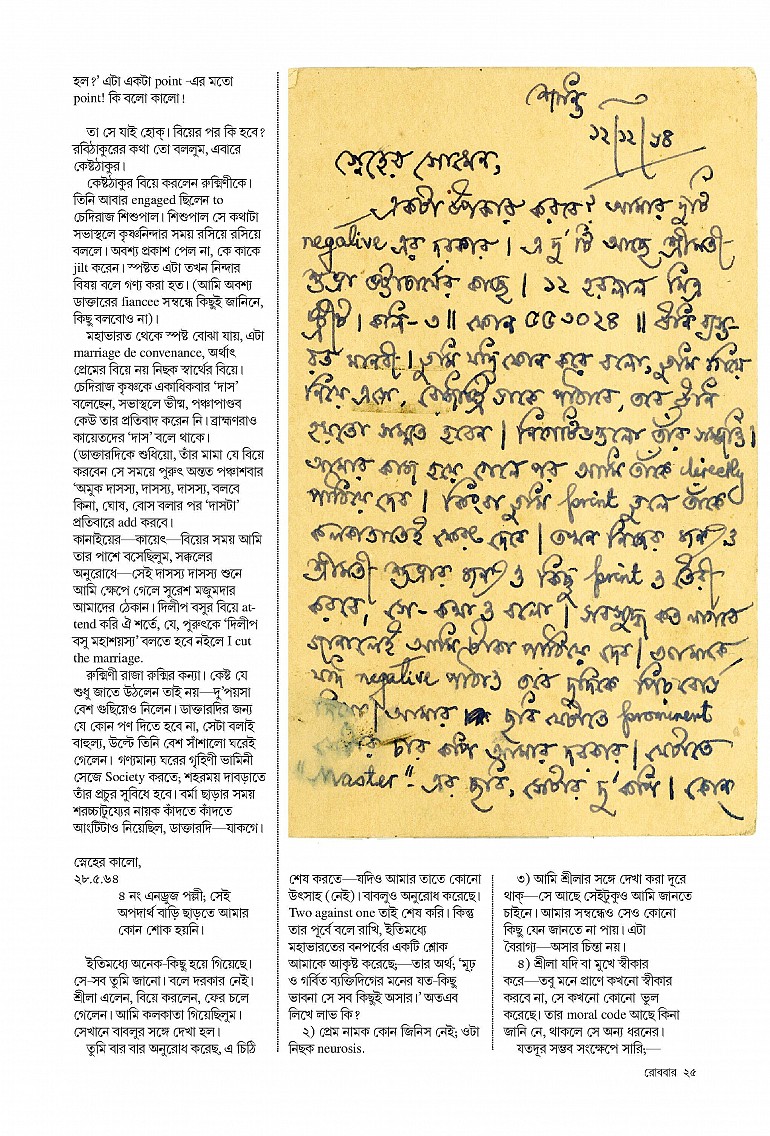 হল?’ এটা একটা point -এর মতো
point! কি বলো কালো!
তা সে যাই হোক্। বিয়ের পর কি হবে?
রবিঠাকুরের কথা তো বললুম, এবারে
কেষ্টঠাকুর।
কেষ্টঠাকুর বিয়ে করলেন রুক্মিণীকে।
তিনি আবার engaged ছিলেন to
চেদিরাজ শিশুপাল। শিশুপাল সে কথাটা
সভাস্থলে কৃষ্ণনিন্দার সময় রসিয়ে রসিয়ে
বললে। অবশ্য প্রকাশ পেল না, কে কাকে
jilt করেন। স্পষ্টত এটা তখন নিন্দার
বিষয় বলে গণ্য করা হত। (আমি অবশ্য
ডাক্তারের fiancee সম্বন্ধে কিছুই জানিনে,
কিছু বলবোও না)।
মহাভারত থেকে স্পষ্ট বোঝা যায়, এটা
marriage de convenance, অর্থাৎ
প্রেমের বিয়ে নয় নিছক স্বার্থের বিয়ে।
চেদিরাজ কৃষ্ণকে একাধিকবার ‘দাস’
বলেছেন, সভাস্থলে ভীষ্ম, পঞ্চাপাণ্ডব
কেউ তার প্রতিবাদ করেন নি। ব্রাহ্মণরাও
কায়েতদের ‘দাস’ বলে থাকে।
(ডাক্তারদিকে শুধিয়ো, তাঁর মামা যে বিয়ে
করবেন সে সময়ে পুরুৎ অন্তত পঞ্চাশবার
‘অমুক দাসস্য, দাসস্য, দাসস্য, বলবে
কিনা, ঘোষ, বোস বলার পর ‘দাসটা’
প্রতিবারে add করবে।
কানাইয়ের—কায়েৎ—বিয়ের সময় আমি
তার পাশে বসেছিলুম, সক্কলের
অনুরোধে—সেই দাসস্য দাসস্য শুনে
আমি ক্ষেপে গেলে সুরেশ মজুমদার
আমাদের ঠেকান। দিলীপ বসুর বিয়ে at-
tend করি ঐ শর্তে, যে, পুরুৎকে ‘দিলীপ
বসু মহাশয়স্য’ বলতে হবে নইলে I cut
the marriage.
রুক্মিণী রাজা রুক্মির কন্যা। কেষ্ট যে
শুধু জাতে উঠলেন তাই নয়—দু’পয়সা
বেশ গুছিয়েও নিলেন। ডাক্তারদির জন্য
যে কোন পণ দিতে হবে না, সেটা বলাই
বাহুল্য, উল্টে তিনি বেশ সাঁশালো ঘরেই
গেলেন। গণ্যমান্য ঘরের গৃহিণী ভামিনী
সেজে Society করতে; শহরময় দাবড়াতে
তাঁর প্রচুর সুবিধে হবে। বর্মা ছাড়ার সময়
শরচ্চাটুয্যের নায়ক কাঁদতে কাঁদতে
আংটিটাও নিয়েছিল, ডাক্তারদি—যাকগে।
স্নেহের কালো,
২৮.৫.৬৪
৪ নং এনড্রুজ পল্লী; সেই
অপদার্থ বাড়ি ছাড়তে আমার
কোন শোক হয়নি।
ইতিমধ্যে অনেক-কিছু হয়ে গিয়েছে।
সে-সব তুমি জানো। বলে দরকার নেই।
শ্রীলা এলেন, বিয়ে করলেন, ফের চলে
গেলেন। আমি কলকাতা গিয়েছিলুম।
সেখানে বাবলুর সঙ্গে দেখা হল।
তুমি বার বার অনুরোধ করেছ, এ চিঠি
শান্তি
১২/১২/৬৪
স্নেহের সোমেন,
একটা উপকার করবে? আমার দুটি
negative এর দরকার। এ দু’টি আছে শ্রীমতী
শুভ্রা ভট্টাচার্যের কাছে। ১২ হরলাল মিত্র
স্ট্রীট। কলি-৩॥ ফোন ৫৫৩০২৪॥ উনি
মানবী। তুমি যদি ফোন করে বলো, তুমি গিয়ে
নিয়ে এসে, রেজিস্ট্রি ডাকে পাঠাবে, তবে উনি
হয়তো সম্মত হবেন। নিগেটিভগুলো তাঁর সম্পত্তি।
আমার কাজ হয়ে গেলে পর আমি তাঁকে directly
পাঠিয়ে দেব। কিংবা তুমি print তুলে তাঁকে
কলকাতাতেই ফেরৎ দেবে। তখন নিজের জন্য ও
শ্রীমতী শুভ্রার জন্য ও কিছু print ও তৈরী
করবে, সে-কথা ও বলো। সবসুদ্ধ কত লাগবে
জানালেই আমি টাকা পাঠিয়ে দেব। তোমাকে
যদি negative পাঠাও তবে দুদিকে পিচবোর্ড
দিয়ো। আমার ছবি যেটাতে prominent
চার কপি আমার দরকার। যেটাতে
“Master”-এর ছবি, সেটার দু’কপি। কোন
শেষ করতে—যদিও আমার তাতে কোনো
উৎসাহ (নেই)। বাবলুও অনুরোধ করেছে।
Two against one তাই শেষ করি। কিন্তু
তার পূর্বে বলে রাখি, ইতিমধ্যে
মহাভারতের বনপর্বের একটি শ্লোক
আমাকে আকৃষ্ট করেছে;—তার অর্থ; ‘মূঢ়
ও গর্বিত ব্যক্তিদিগের মনের যত-কিছু
ভাবনা সে সব কিছুই অসার।’ অতএব
লিখে লাভ কি?
২) প্রেম নামক কোন জিনিস নেই; ওটা
নিছক neurosis.
৩) আমি শ্রীলার সঙ্গে দেখা করা দূরে
থাক্—সে আছে সেইটুকুও আমি জানতে
চাইনে। আমার সম্বন্ধেও সেও কোনো
কিছু যেন জানতে না পায়। এটা
বৈরাগ্য—অসার চিন্তা নয়।
৪) শ্রীলা যদি বা মুখে স্বীকার
করে—তবু মনে প্রাণে কখনো স্বীকার
করবে না, সে কখনো কোনো ভুল
করেছে। তার moral code আছে কিনা
জানি নে, থাকলে সে অন্য ধরনের।
যতদূর সম্ভব সংক্ষেপে সারি;—
রোববার ২৫